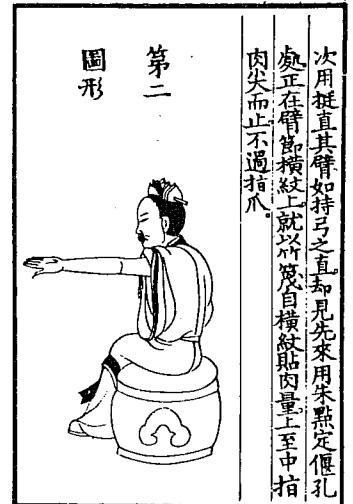 次用挺直其臂如持弓之直却見先來用朱點定偃孔
處正在臂節橫紋上就以竹篾自橫紋貼肉量上至中指
肉尖而止不過指爪。
第二
圖形